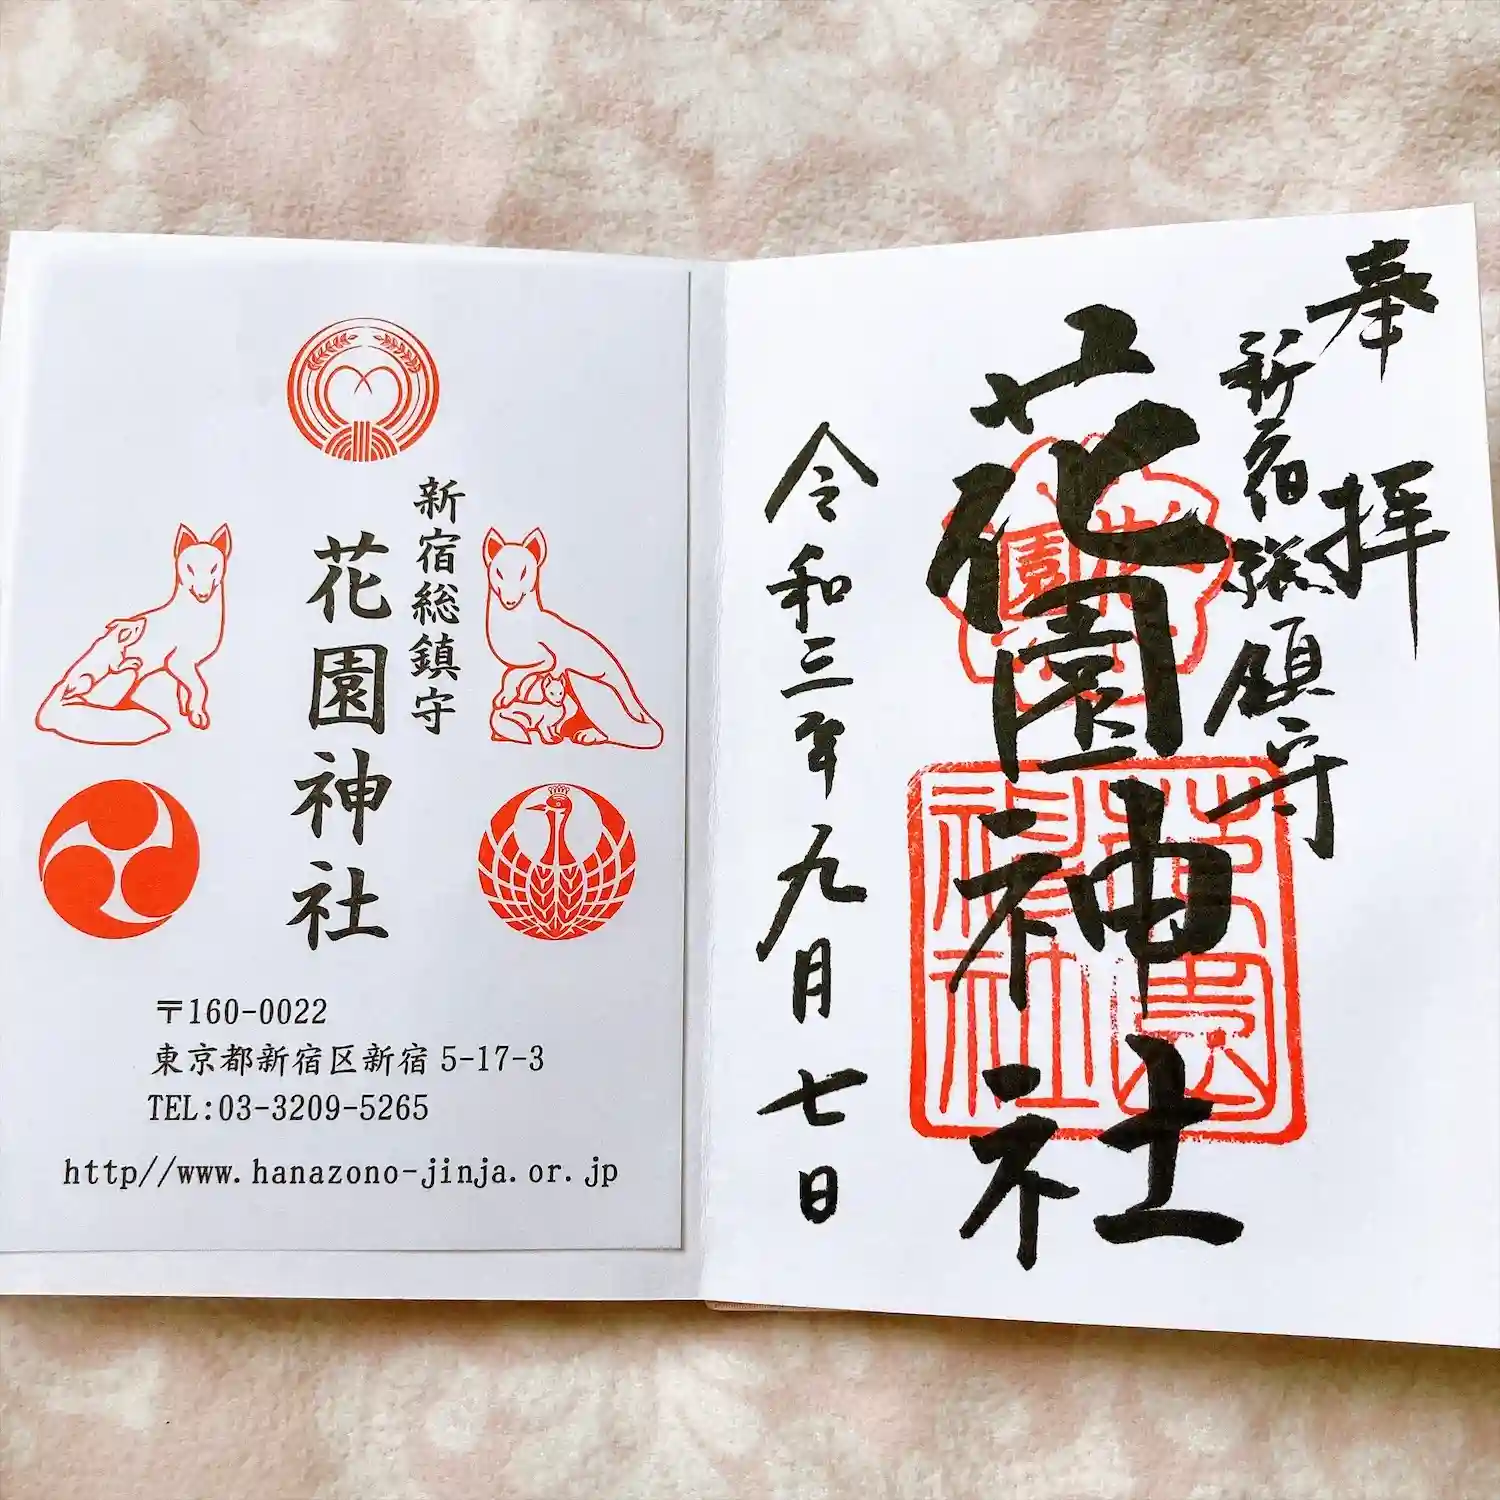 新宿総鎮守
花園神社
〒160-0022
東京都新宿区新宿5-17-3
TEL:03-3209-5265
http//www.hanazono-jinja.or.jp
奉拝
新宿総鎮守
花園神社
令和三年九月七日
花園
花園神社